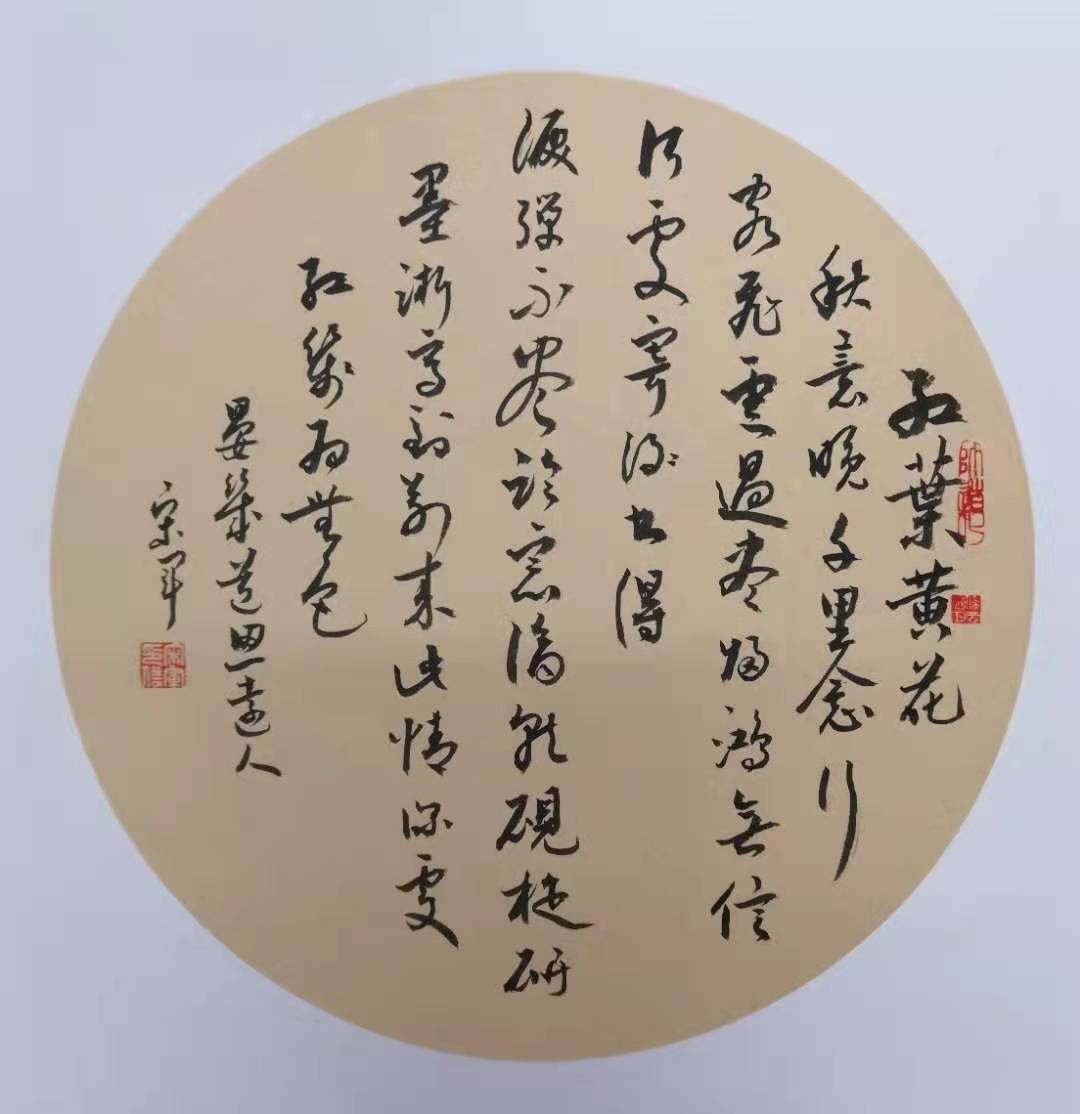 紅葉黄花
秋意晚千里念行
客飛雲過盡歸鴻無信
何處寄书得
淚彈不盡臨窗滴就硯旋研
墨漸寫到別來此情深處
紅箋為無色
晏幾道思遠人
宋軍